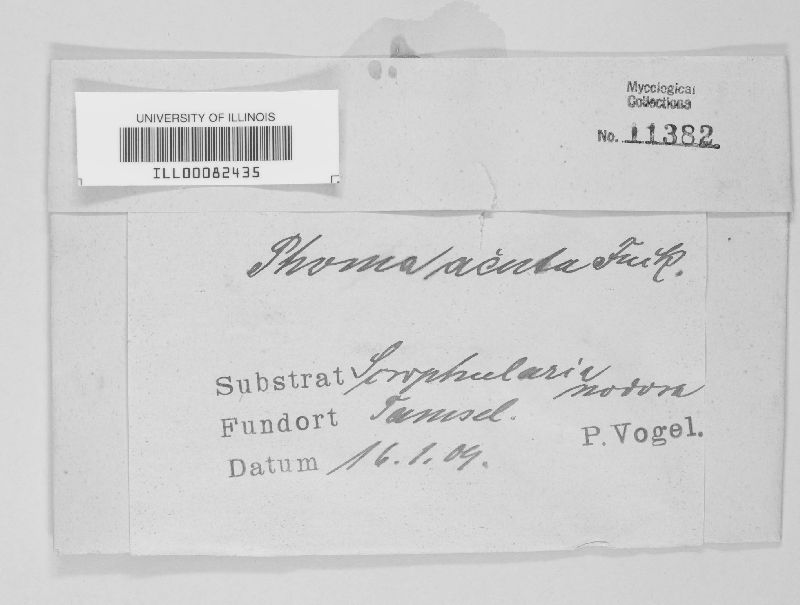 UNIVERSITY OF ILLINOIS
ILL00082435
Mycological
Collections
No. 11382
Phoma acuta Fuck.
Substrat Scrophularia
nodosa
Fundort Tamsel.
P. Vogel.
Datum 16.1.09.